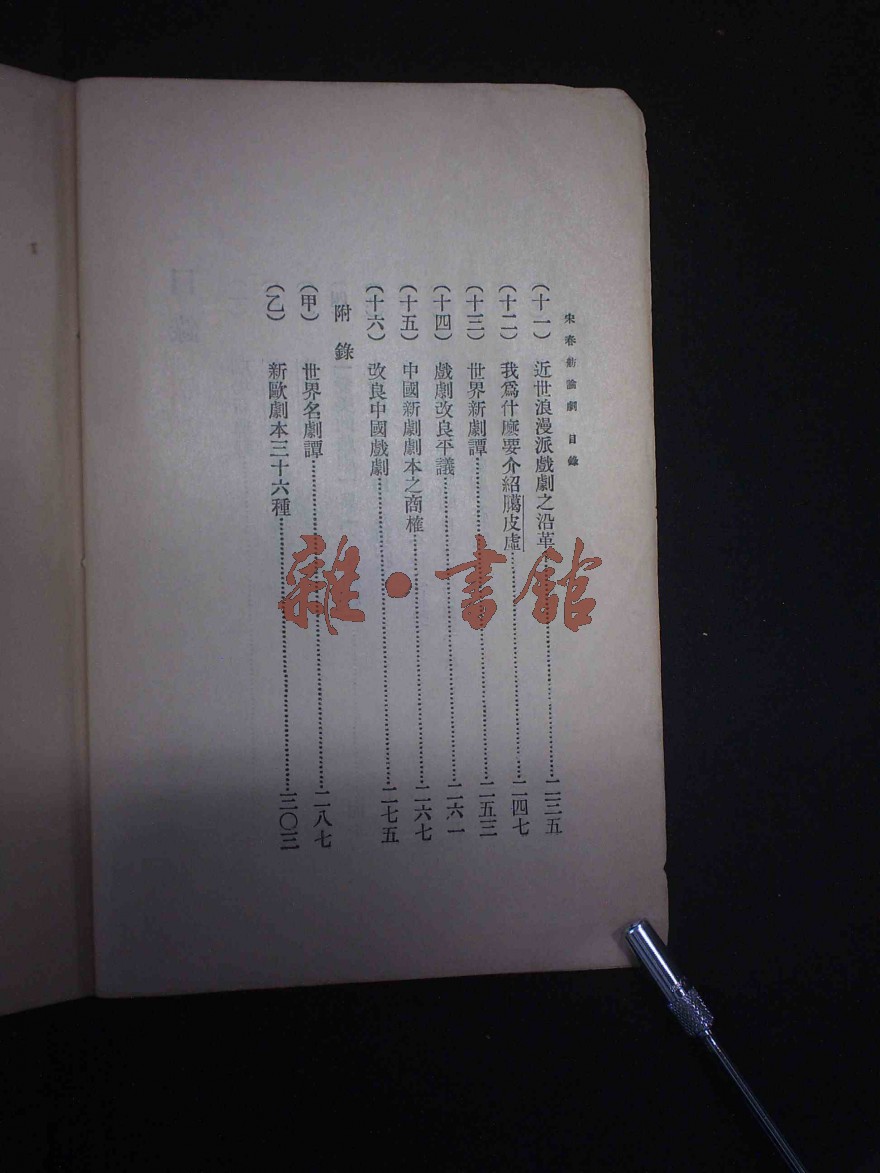 宋春舫論劇 目錄
（十一） 近世浪漫派戲劇之沿革……二三五
（十二） 我爲什麼要介紹臈皮虛……二四七
（十三） 世界新劇譚……二五三
（十四） 戲劇改良平議……二六一
（十五） 中國新劇劇本之商榷……二六七
（十六） 改良中國戲劇……二七五
附錄
（甲） 世界名劇譚……二八七
（乙） 新歐劇本三十六種……三〇三
雜·書館